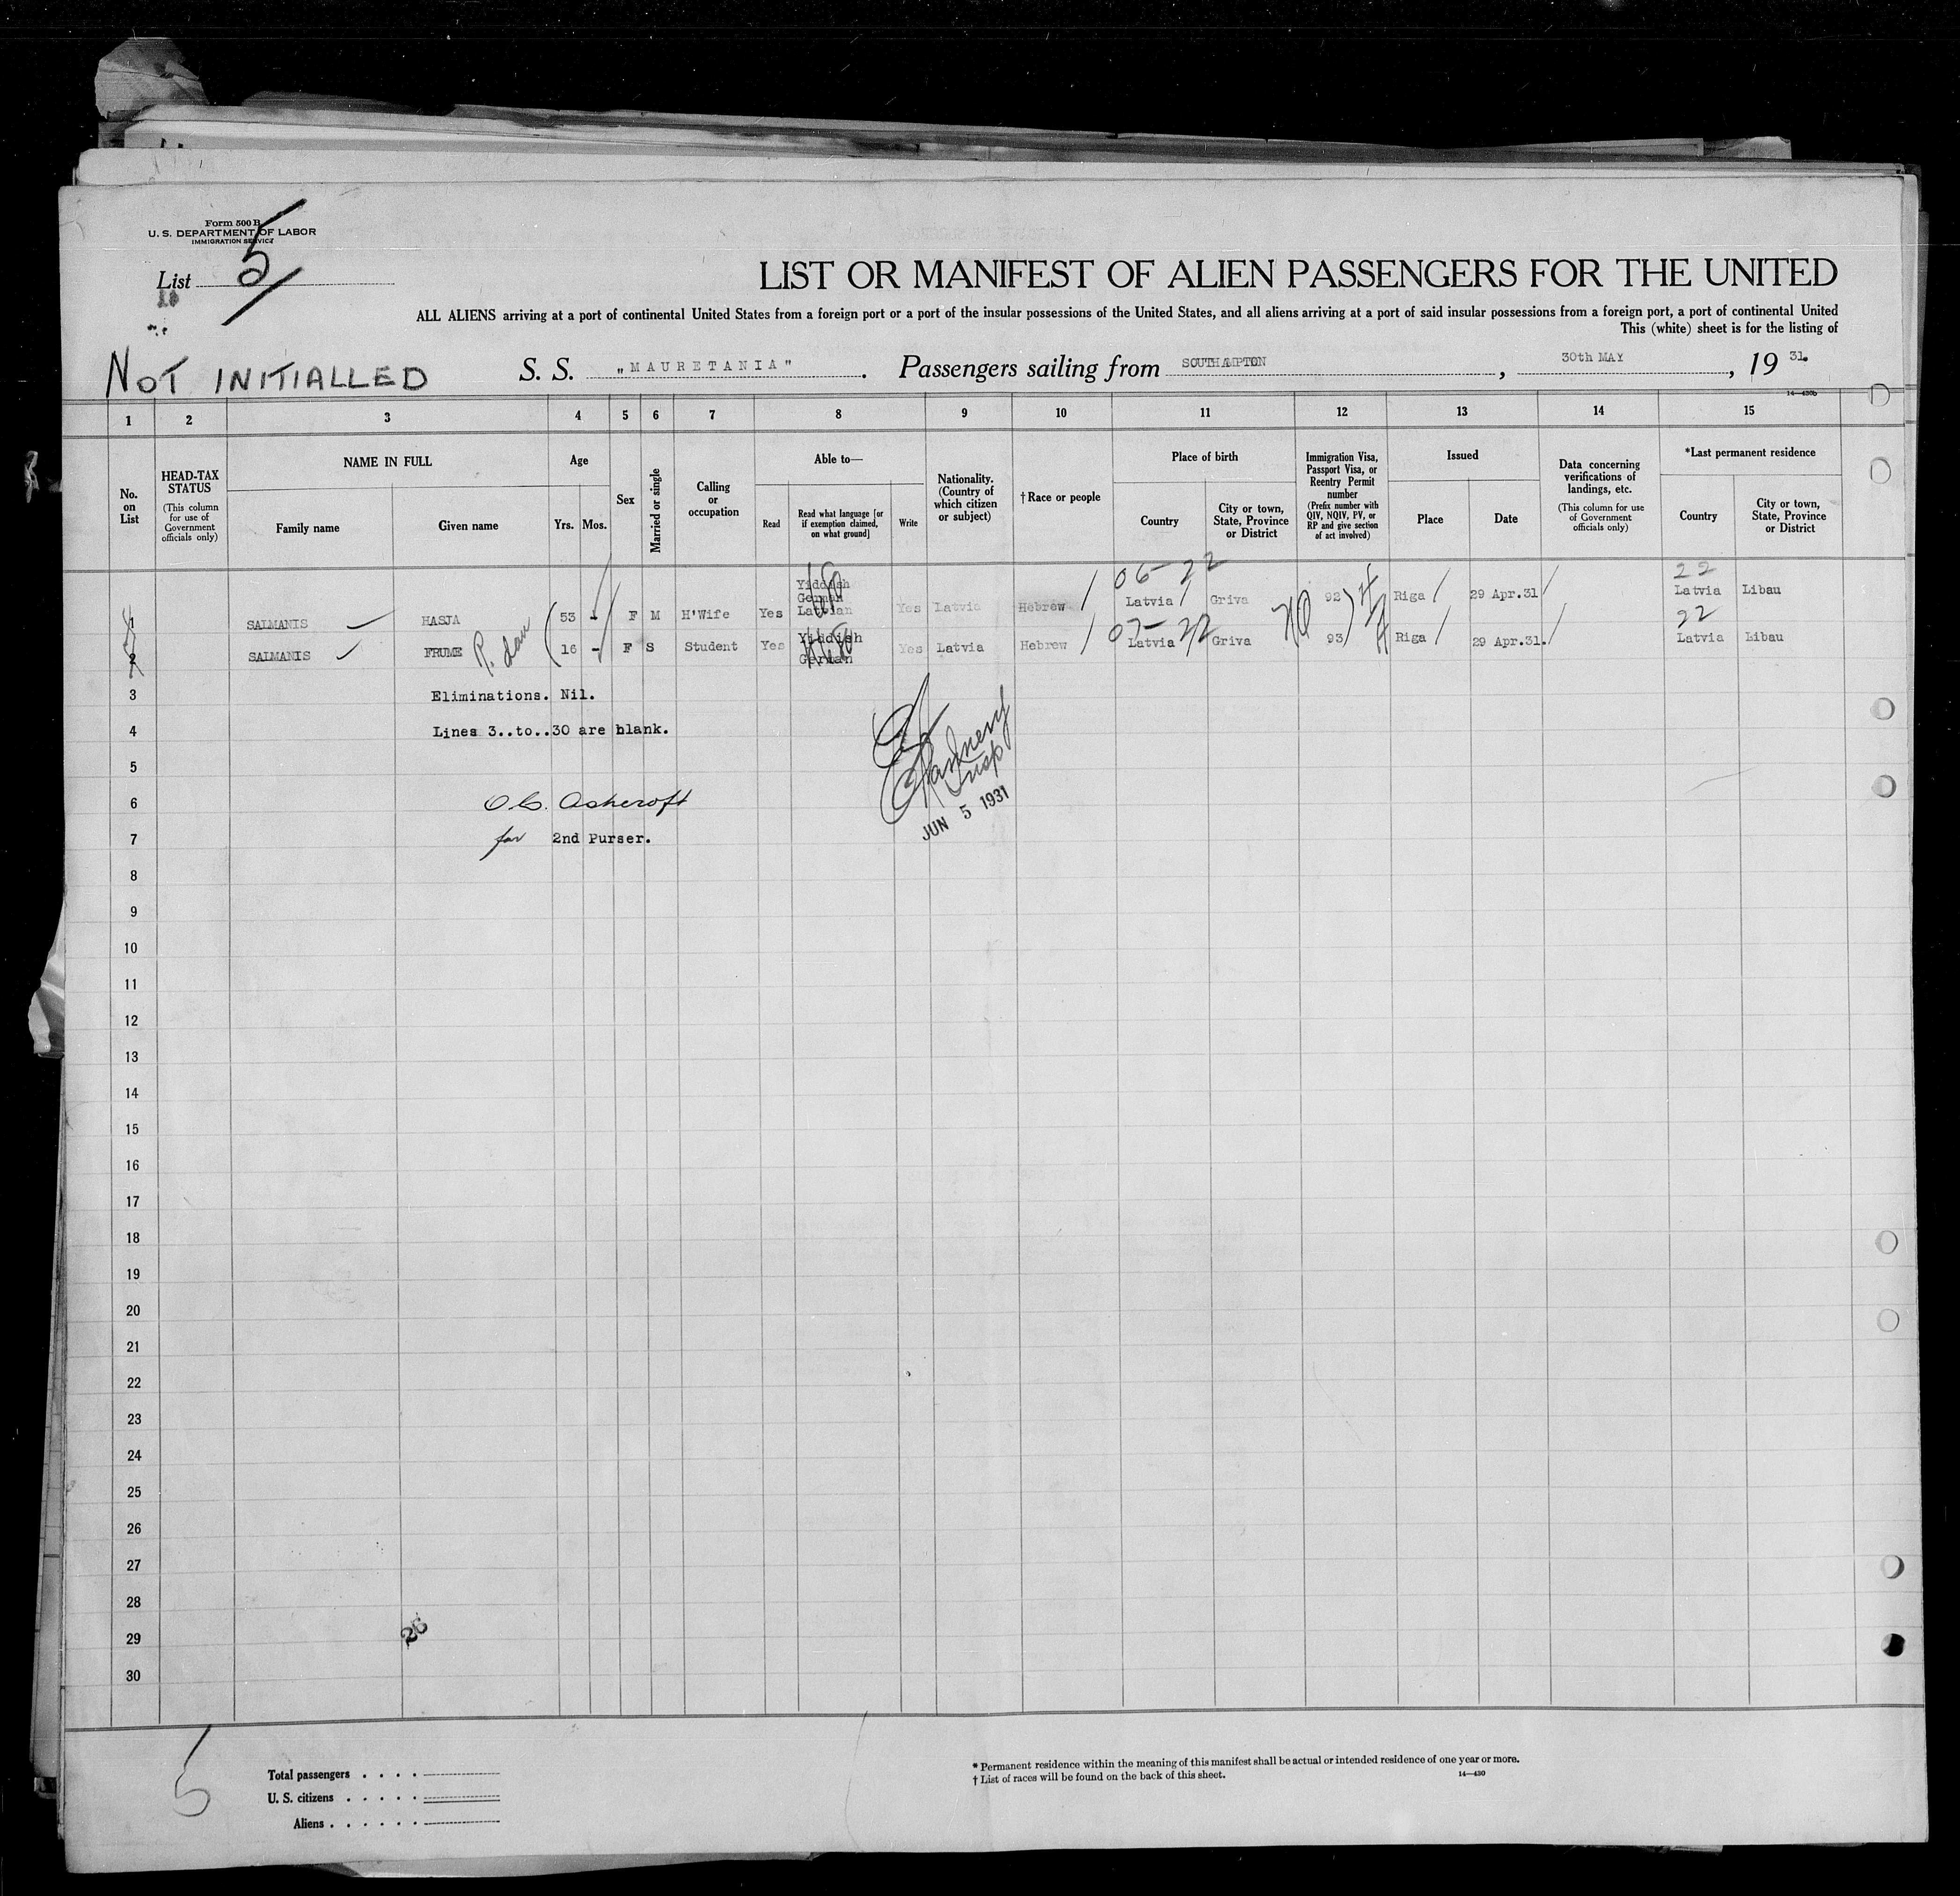 Form 500 B
U. S. DEPARTMENT OF LABOR
IMMIGRATION SERVICE
List 5
LIST OR MANIFEST OF ALIEN PASSENGERS FOR THE UNITED
ALL ALIENS arriving at a port of continental United States from a foreign port or a port of the insular possessions of the United States, and all aliens arriving at a port of said insular possessions from a foreign port, a port of continental United
This (white) sheet is for the listing of
NOT INITIALLED
S. S. "MAURETANIA". Passengers sailing from SOUTHAMPTON, 30th MAY, 19 31.
14—430b
1 2 3 4 5 6 7 8 9 10 11 12 13 14 15
No. on List
HEAD-TAX STATUS
(This column for use of Government officials only)
NAME IN FULL
Family name
Given name
Age
Yrs. Mos.
Sex
Married or single
Calling or occupation
Able to—
Read
Read what language [or if exemption claimed, on what ground]
Write
Nationality. (Country of which citizen or subject)
†Race or people
Place of birth
Country
City or town, State, Province or District
Immigration Visa, Passport Visa, or Reentry Permit number
(Prefix number with QIV, NQIV, PV, or RP and give section of act involved)
Issued
Place
Date
Data concerning verifications of landings, etc.
(This column for use of Government officials only)
*Last permanent residence
Country
City or town, State, Province or District
06 22 22
1 SALMANIS HASJA 53 - F M H'Wife Yes Yiddish German Latvian Yes Latvia Hebrew Latvia Griva 92 Riga 29 Apr.31 Latvia Libau
07 22 22
2 SALMANIS FRUME 16 - F S Student Yes Yiddish German Yes Latvia Hebrew Latvia Griva 93 Riga 29 Apr.31. Latvia Libau
3 Eliminations. Nil.
4 Lines 3..to..30 are blank.
5
6 Ashcroft
7 for 2nd Purser.
Insp
JUN 5 1931
8
9
10
11
12
13
14
15
16
17
18
19
20
21
22
23
24
25
26
27
28
29
26
30
5
Total passengers
U. S. citizens
Aliens
* Permanent residence within the meaning of this manifest shall be actual or intended residence of one year or more.
† List of races will be found on the back of this sheet.
14—430